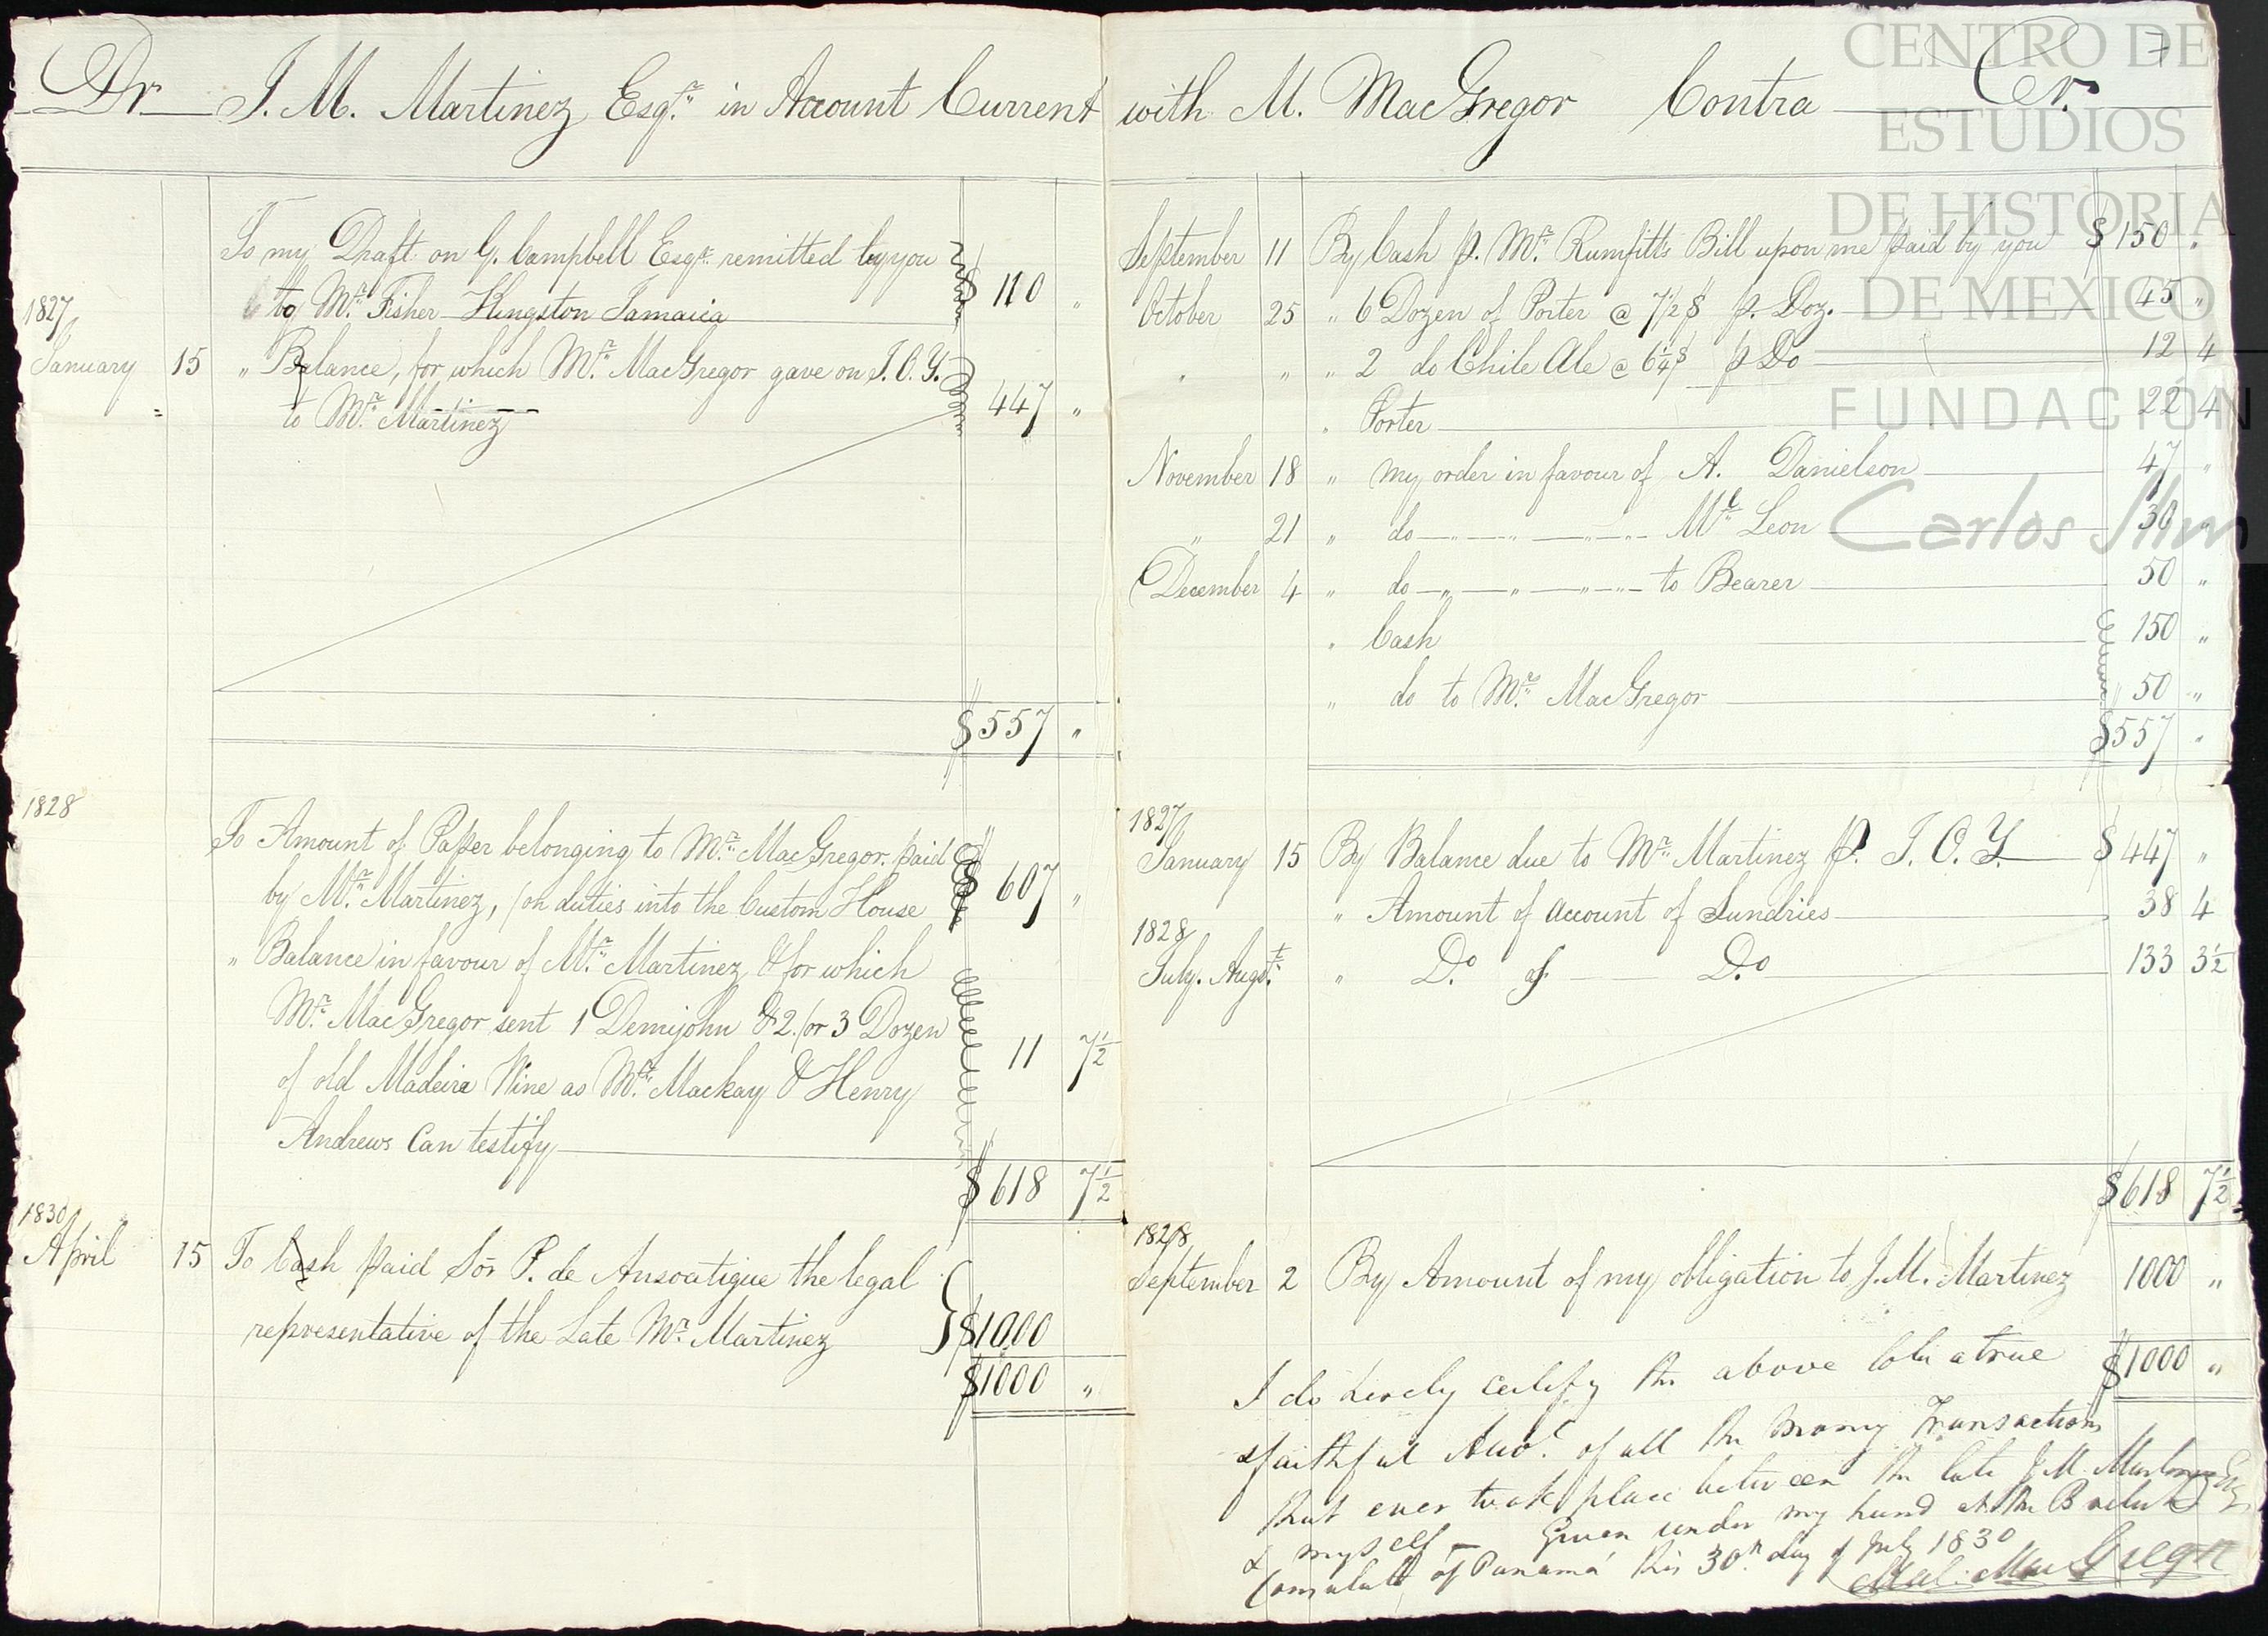 Dr J. M. Martinez Esqr. in Account Current with M. MacGregor Contra Cr. 7
To my Draft on G. Campbell Esqr. remitted by you
to Mr. Fisher Kingston Jamaica $ 110 "
1827
January 15 " Balance, for which Mr. MacGregor gave on I. O. Y.
to Mr. Martinez 447 "
$557 "
1828
To Amount of Paper belonging to Mr. MacGregor, paid
by Mr. Martinez, for duties into the Custom House $ 607 "
" Balance in favour of Mr. Martinez & for which
Mr. MacGregor sent 1 Demijohn & 2 or 3 Dozen
of old Madeira Wine as Mr. Mackay & Henry 11 7½
Andrews Can testify
$ 618 7½
1830
April 15 To Cash paid Sōr P. de Ansoatigue the legal
representative of the Late Mr. Martinez } $1000
$1000 "
September 11 By Cash p. Mr. Rumfitts Bill upon me paid by you $ 150 "
October 25 " 6 Dozen of Porter @ 7½ $ p. Doz. 45 "
" " 2 do Chile Ale @ 6¼ $ p Do 12 4
" Porter 22 4
November 18 " my order in favour of A. Danielson 47 "
" 21 " do Leon 30 "
December 4 " do to Bearer 50 "
" Cash 150 "
" do to Mr. MacGregor 50 "
$557 "
1827
January 15 By Balance due to Mr. Martinez p. I. O. Y. $ 447 "
" Amount of Account of Sundries 38 4
1828
July. Augst. " Do of Do 133 3½
$618 7½
1828
September 2 By Amount of my obligation to J. M. Martinez 1000 "
$1000 "
I do hereby certify the above to be a true
& faithful Acct. of all the money Transactions
that ever took place between the late J. M. Martinez Esq
& myself — Given under my hand at the British
Consulate of Panamá this 30th day of July 1830
Mal: MacGregor
CENTRO DE
ESTUDIOS
DE HISTORIA
DE MEXICO
FUNDACIÓN
Carlos Slim